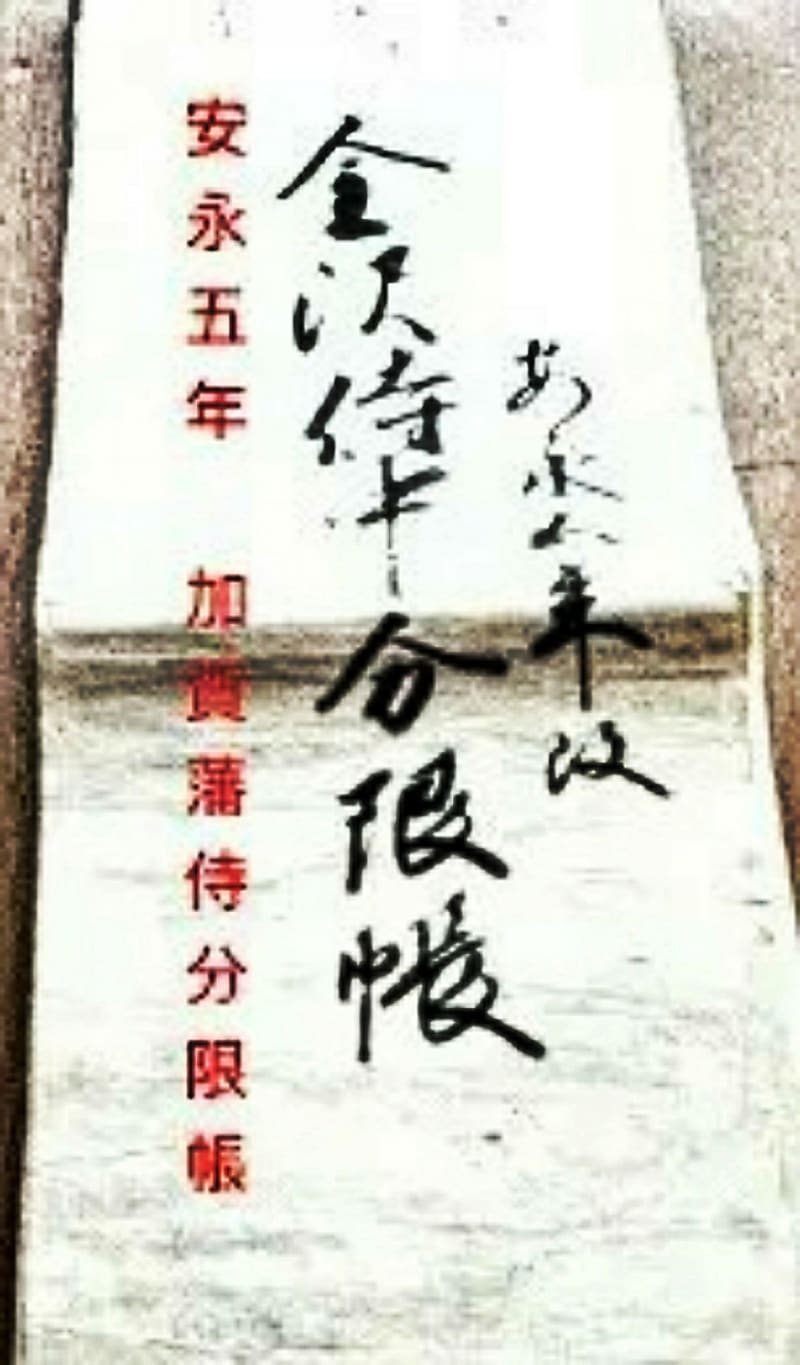 安永六年改
金沢侍中分限帳
安永五年 加賀藩侍分限帳